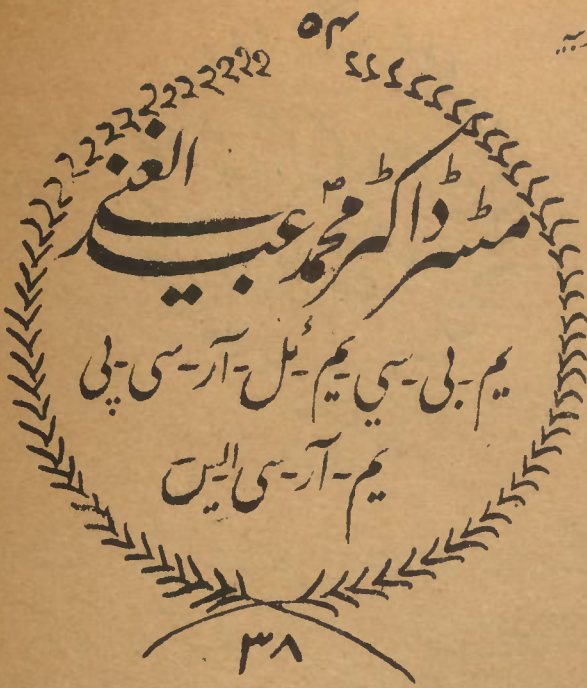 ۵۴
مسٹر ڈاکٹر محمد عبد الغنی
یم-بی-سی یم-ئل-آر-سی-پی
یم-آر-سی-ایس
۳۸